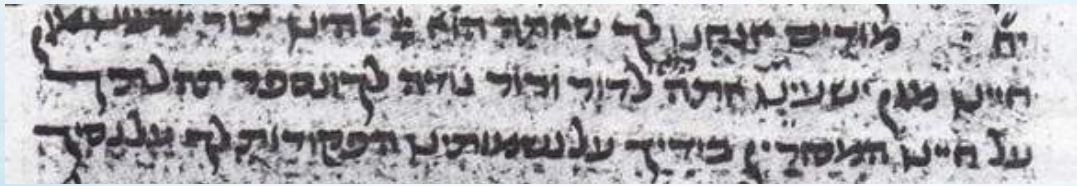 יח מודים אנחנו לך שאתה הוא אלהינו צור
חיינו מגן ישעינו אתה לדור ודור נודה לך ונספר תהלתך
על חיינו המסורין בידיך על נשמותינו הפקודות לך על נסיך